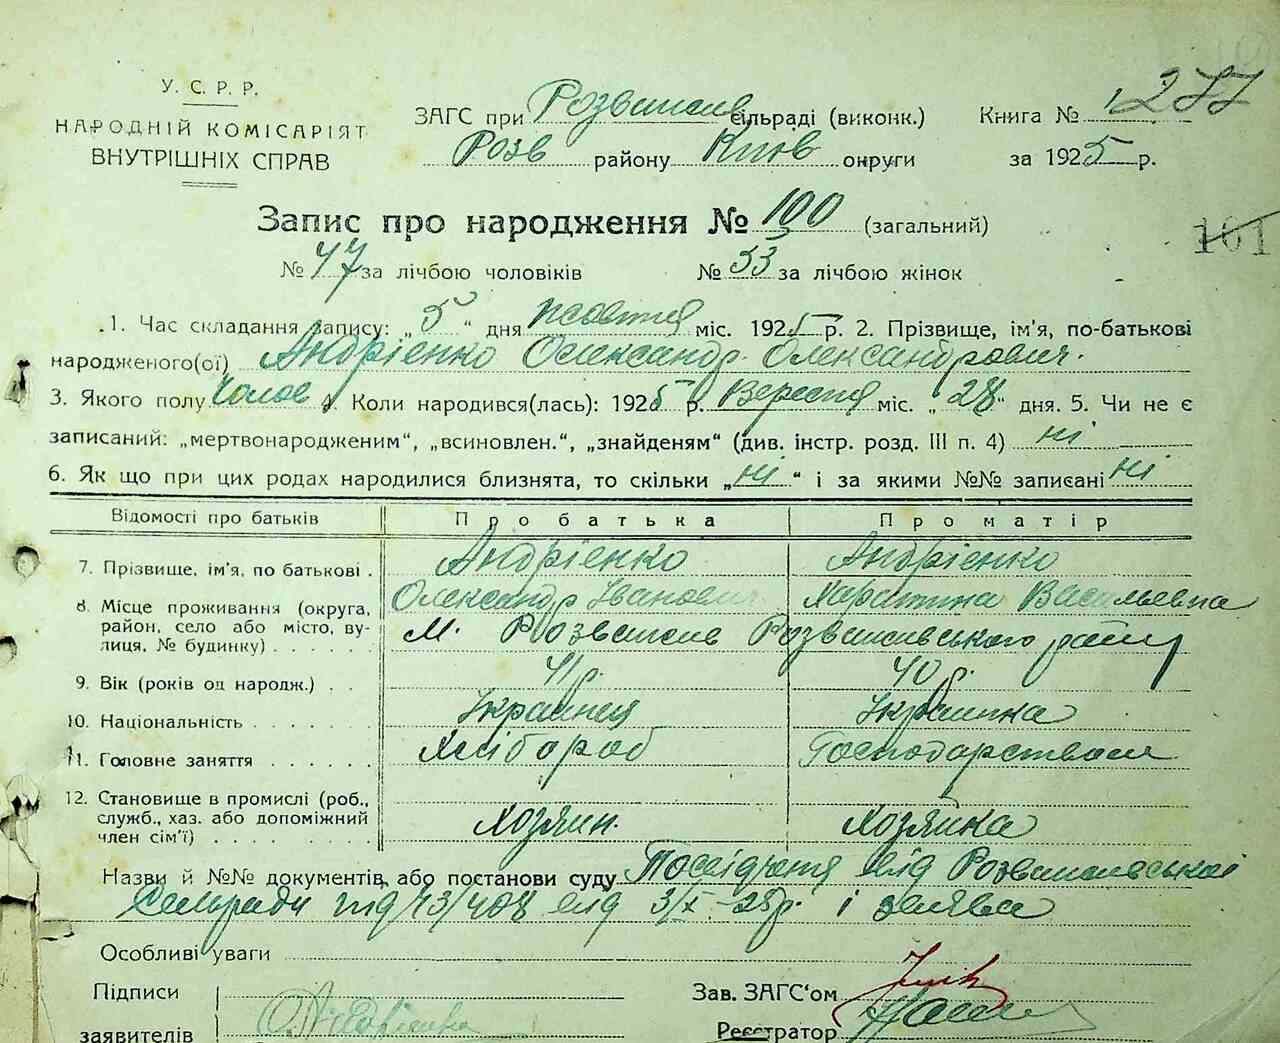 У. С. Р. Р.
НАРОДНІЙ КОМІСАРІЯТ
ВНУТРІШНІХ СПРАВ
ЗАГС при Розважев сільраді (виконк.) Книга № 277
Розв району Київ округи за 1925 р.
Запис про народження № 100 (загальний)
101
№ 47 за лічбою чоловіків № 53 за лічбою жінок
1. Час складання запису: „5“ дня жовтня міс. 1925 р. 2. Прізвище, ім'я, по-батькові
народженого(ої) Андрієнко Олександр Олександрович.
3. Якого полу чолов 4. Коли народився(лась): 1925 р. Вересня міс. „28“ дня. 5. Чи не є
записаний: „мертвонародженим“, „всиновлен.“, „знайденям“ (див. інстр. розд. III п. 4) ні
6. Як що при цих родах народилися близнята, то скільки „ні“ і за якими №№ записані ні
Відомості про батьків Про батька Про матір
7. Прізвище, ім'я, по батькові . Андрієнко Андрієнко
Олександр Іванович Харитина Васильевна
8. Місце проживання (округа, район, село або місто, вулиця, № будинку) . . . . . М. Розважев Розважевського району
9. Вік (років од народж.) . . 41 р. 40 р.
10. Національність . . . . . . Українец Українка
11. Головне заняття . . . . . . Хлібороб Господарством
12. Становище в промислі (роб., служб., хаз. або допоміжний член сім'ї) . . . . . . . Хозяин. Хозяйка
Назви й №№ документів, або постанови суду Посвідчення від Розважевської
Сельради під 43/408 від 3/X-25р. і заява
Особливі уваги
Підписи Зав. ЗАГС'ом
заявителів О. Андрієнко Реєстратор